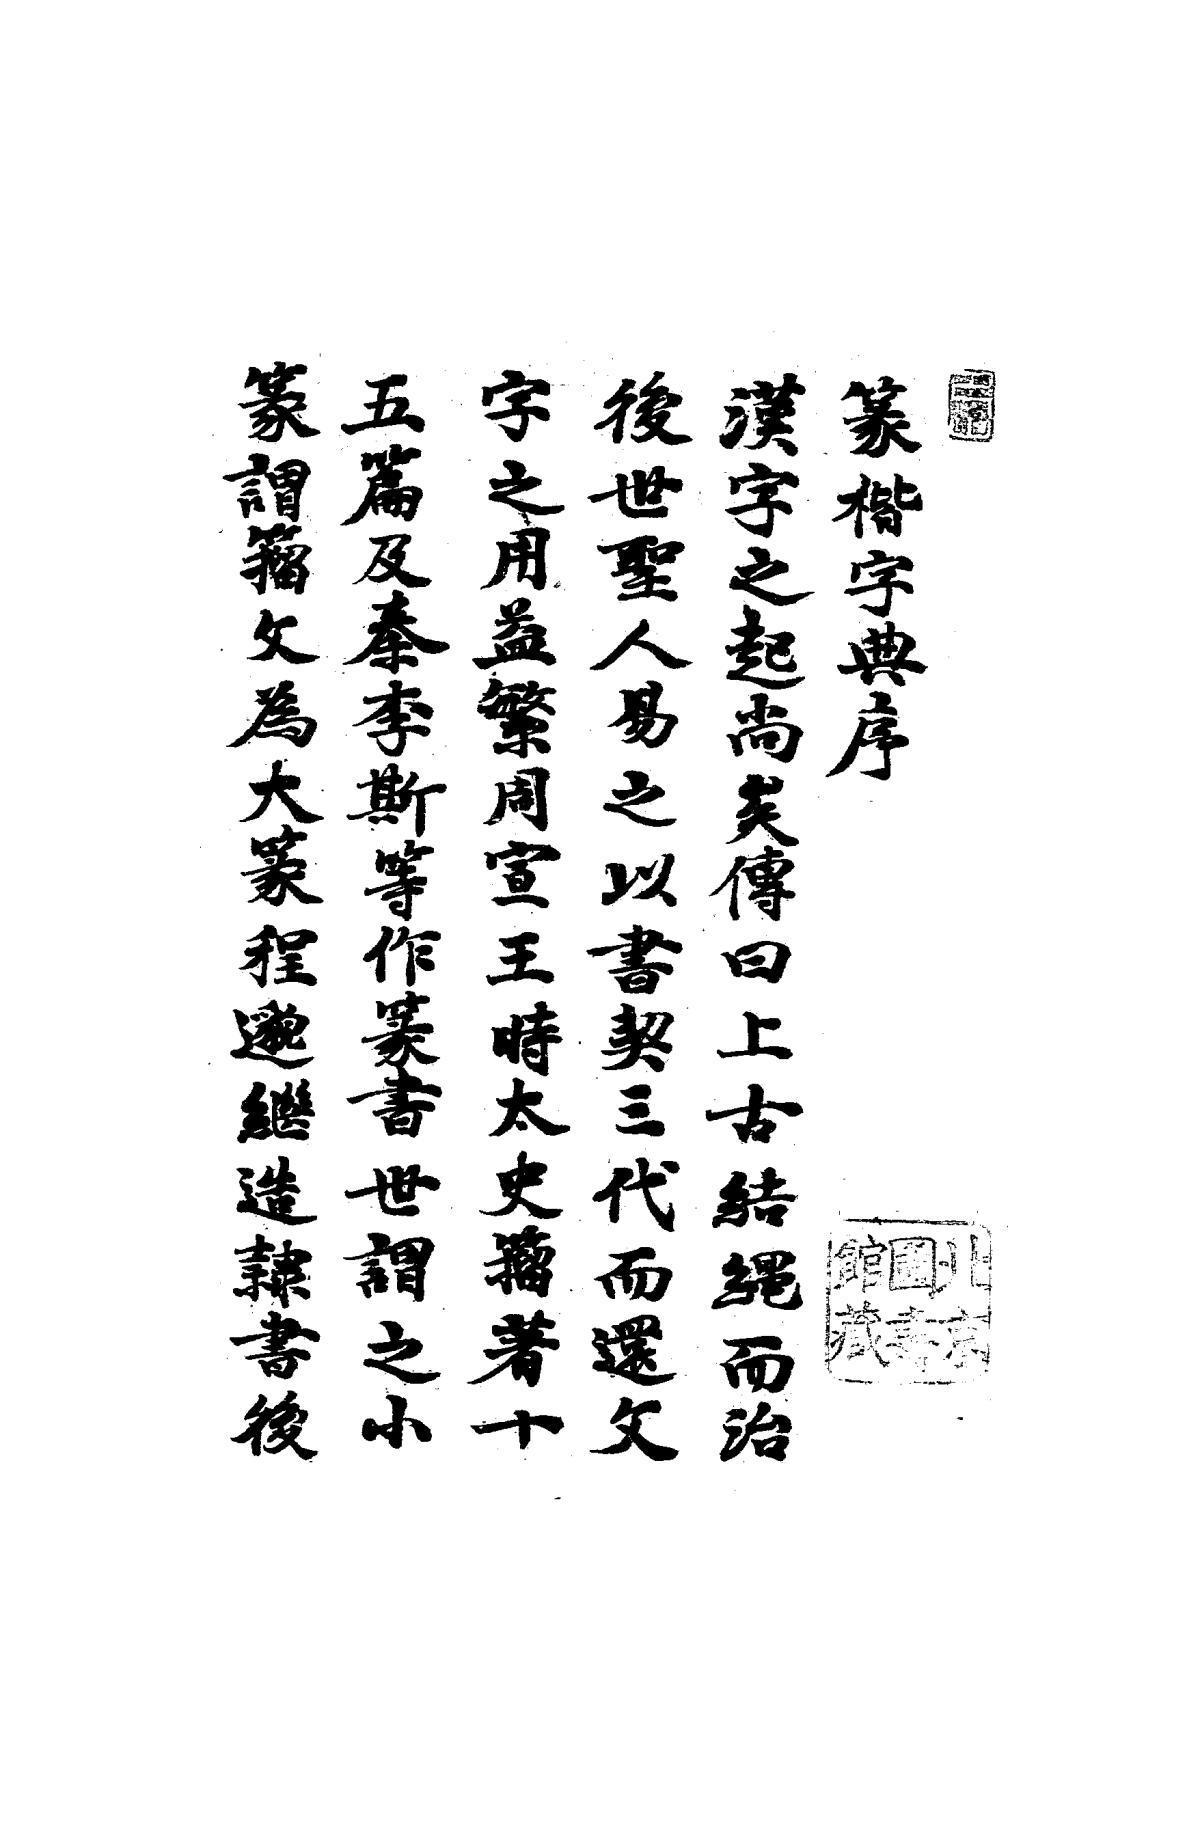 篆楷字典序
漢字之起尚矣傳曰上古結繩而治
後世聖人易之以書契三代而還文
字之用益繁周宣王時太史籀著十
五篇及秦李斯等作篆書世謂之小
篆謂籀文為大篆程邈繼造隷書後
北京
圖書
館藏